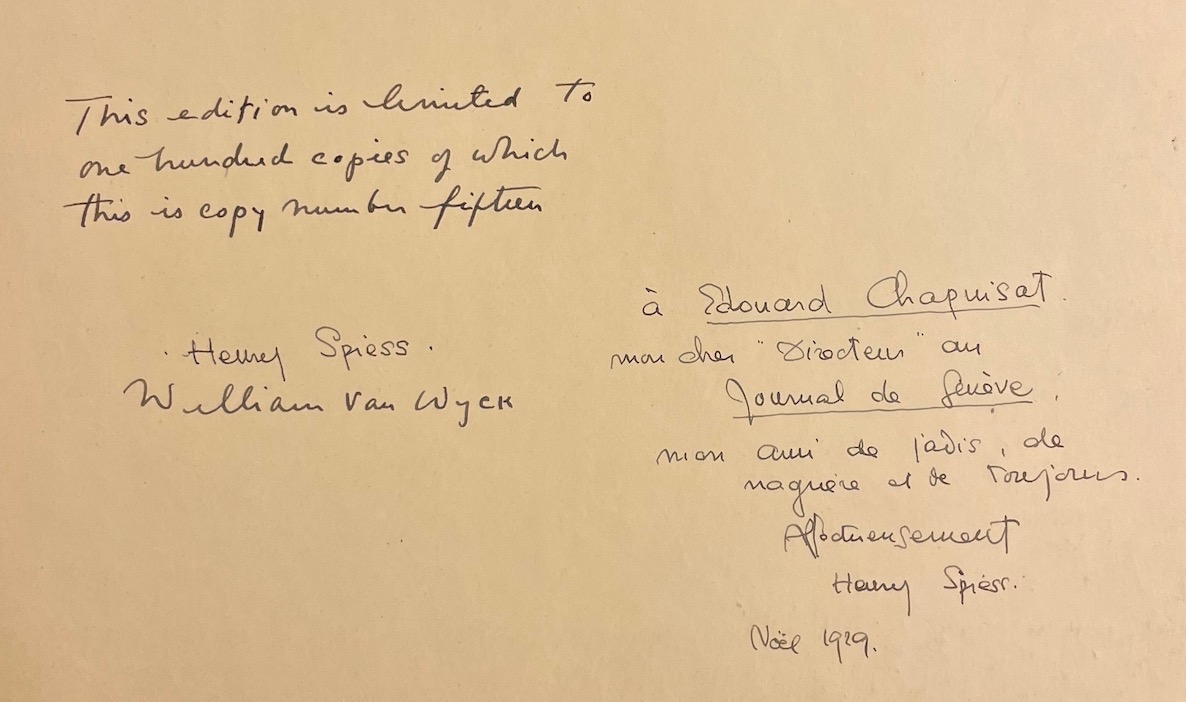 This edition is limited to
one hundred copies of which
this is copy number fifteen
Henry Spiess.
William Van Wyck
à Edouard Chapuisat.
mon cher "Directeur" au
Journal de Genève,
mon ami de jadis, de
naguère et de toujours.
Affectueusement
Henry Spiess.
Noël 1929.